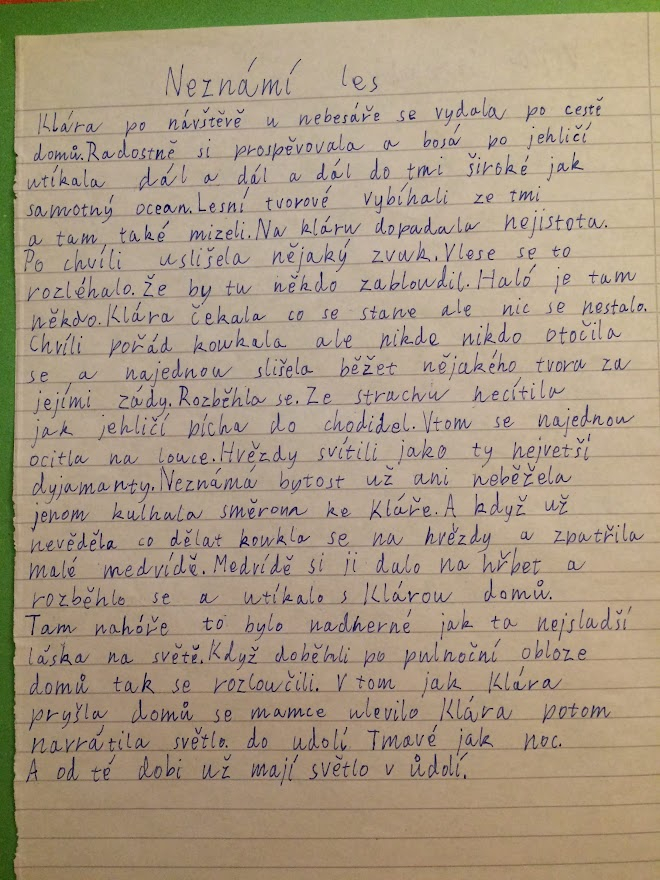 Neznámí les
Klára po návštěvě u nebesáře se vydala po cestě
domů. Radostně si prospěvovala a bosá po jehličí
utíkala dál a dál a dál do tmi široké jak
samotný ocean. Lesní tvorové vybíhali ze tmi
a tam také mizeli. Na kláru dopadala nejistota.
Po chvíli uslišela nějaký zvuk. Vlese se to
rozléhalo. Že by tu někdo zabloudil. Haló je tam
někdo. Klára čekala co se stane ale nic se nestalo.
Chvíli pořád koukala ale nikde nikdo otočila
se a najednou slišela běžet nějakého tvora za
jejími zády. Rozběhla se. Ze strachu necítila
jak jehličí píchá do chodidel. Vtom se najednou
ocitla na louce. Hvězdy svítili jako ty nejvetší
dyjamanty. Neznámá bytost už ani neběžela
jenom kulhala směrem ke Kláře. A když už
nevěděla co dělat koukla se na hvězdy a zpatřila
malé medvídě. Medvídě si ji dalo na hřbet a
rozběhlo se a utíkalo s Klárou domů.
Tam nahóře to bylo nadherné jak ta nejsladší
láska na světě. Když doběhli po pulnoční obloze
domů tak se rozloučili. V tom jak Klára
pryšla domů se mamce ulevilo Klára potom
navrátila světlo. do udolí Tmavé jak noc.
A od té dobi už mají světlo v ůdolí.